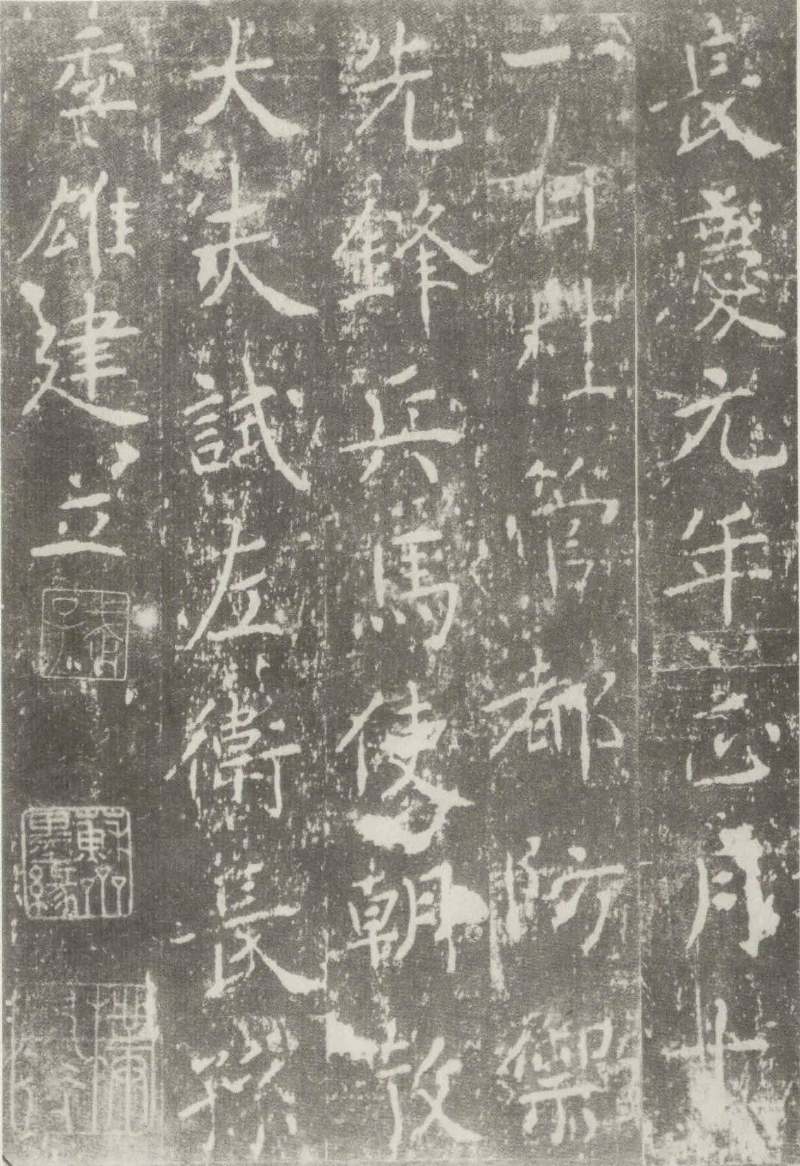 長慶元年正月十
一日桂管都防禦
先鋒兵馬使朝散
大夫試左衛長孫
季雄建立
蘇齋墨緣